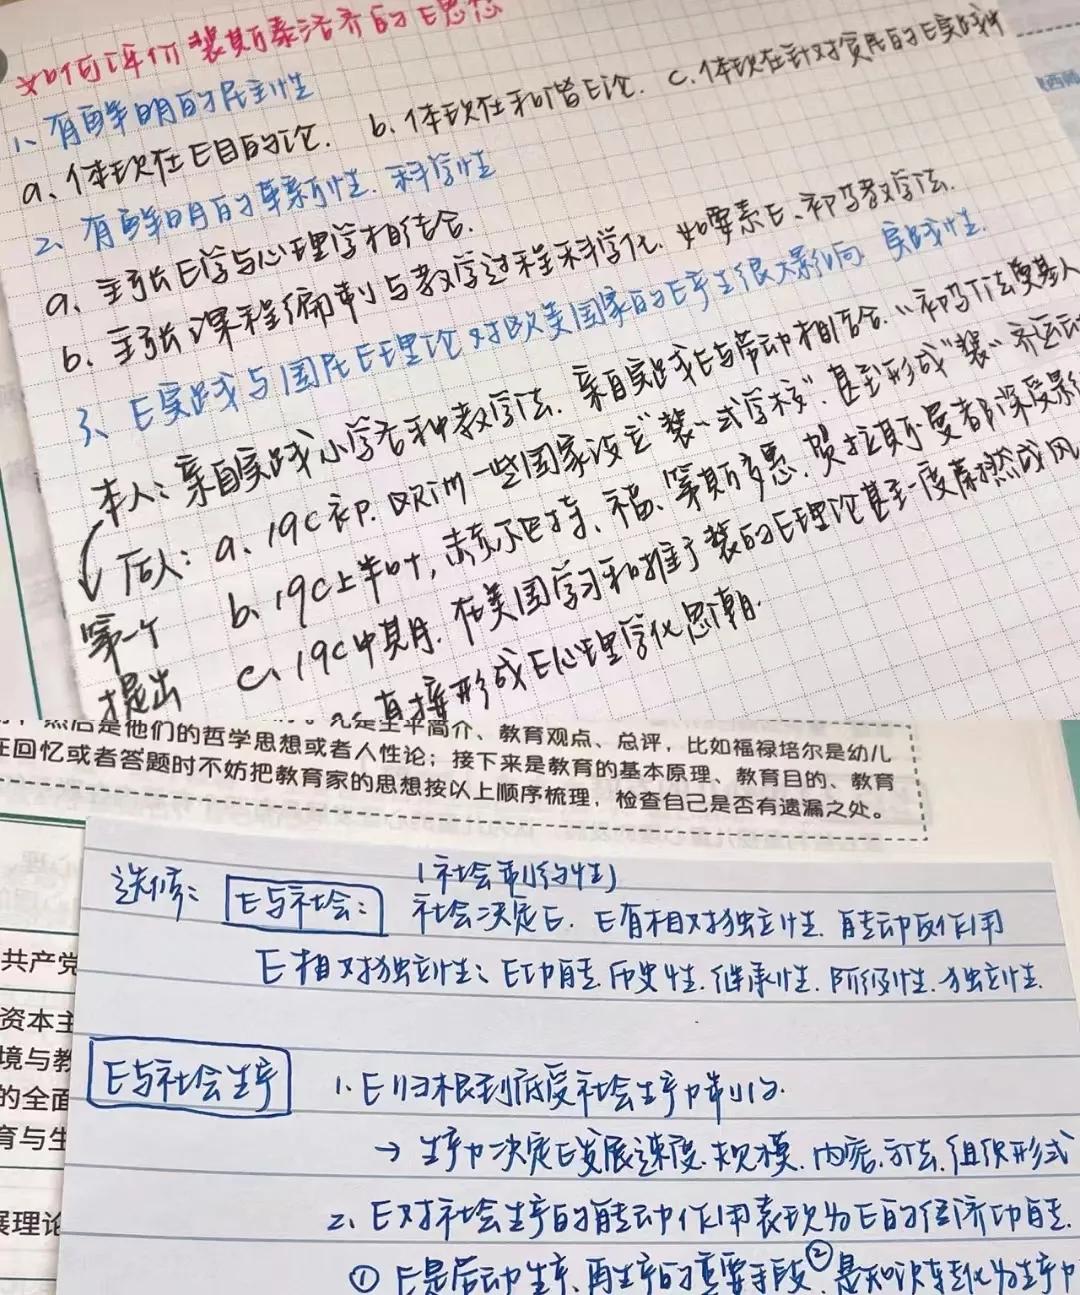 如何评价裴斯泰洛齐的E思想
1、有鲜明的民主性
a、体现在E目的论. b、体现在和谐E论. c、体现在针对贫民的E实践中
2、有鲜明的革新性、科学性
a、主张E学与心理学相结合.
b、主张课程编制与教学过程科学化. 如要素E、初等教学法.
3、E实践与国民E理论对欧美国家的E产生很大影响 实践性.
本人：亲自实践小学各种教学法. 亲自实践E与劳动相结合.
后人：a、19C初. 欧洲一些国家设立“裴”式学校”. 甚至形成“裴”齐运动
b、19C上半叶, 赫尔巴特、福、第斯多惠、贺拉斯·曼都深受影
c、19C中期. 在美国学习和推广裴的E理论甚至一度蔚然成风
第一个
提出
直接形成E心理学化思潮.
然后是他们的哲学思想或者人性论；接下来是教育的基本原理、教育目的、教育
生平简介、教育观点、总评，比如福禄培尔是幼儿
在回忆或者答题时不妨把教育家的思想按以上顺序梳理，检查自己是否有遗漏之处。
共产党
资本主
境与教
的全面
育与生
展理论
选修： E与社会：
(社会制约性)
社会决定E. E有相对独立性. 能动反作用
E相对独立性：E功能. 历史性. 继承性. 阶级性. 独立性.
E与社会生产 1. E归根到底受社会生产力制约.
→ 生产力决定E发展速度. 规模. 内容. 方法. 组织形式
2、E对社会生产的能动作用表现为E的经济功能.
① E是劳动生产、再生产的重要手段 ② 是知识转化为生产力